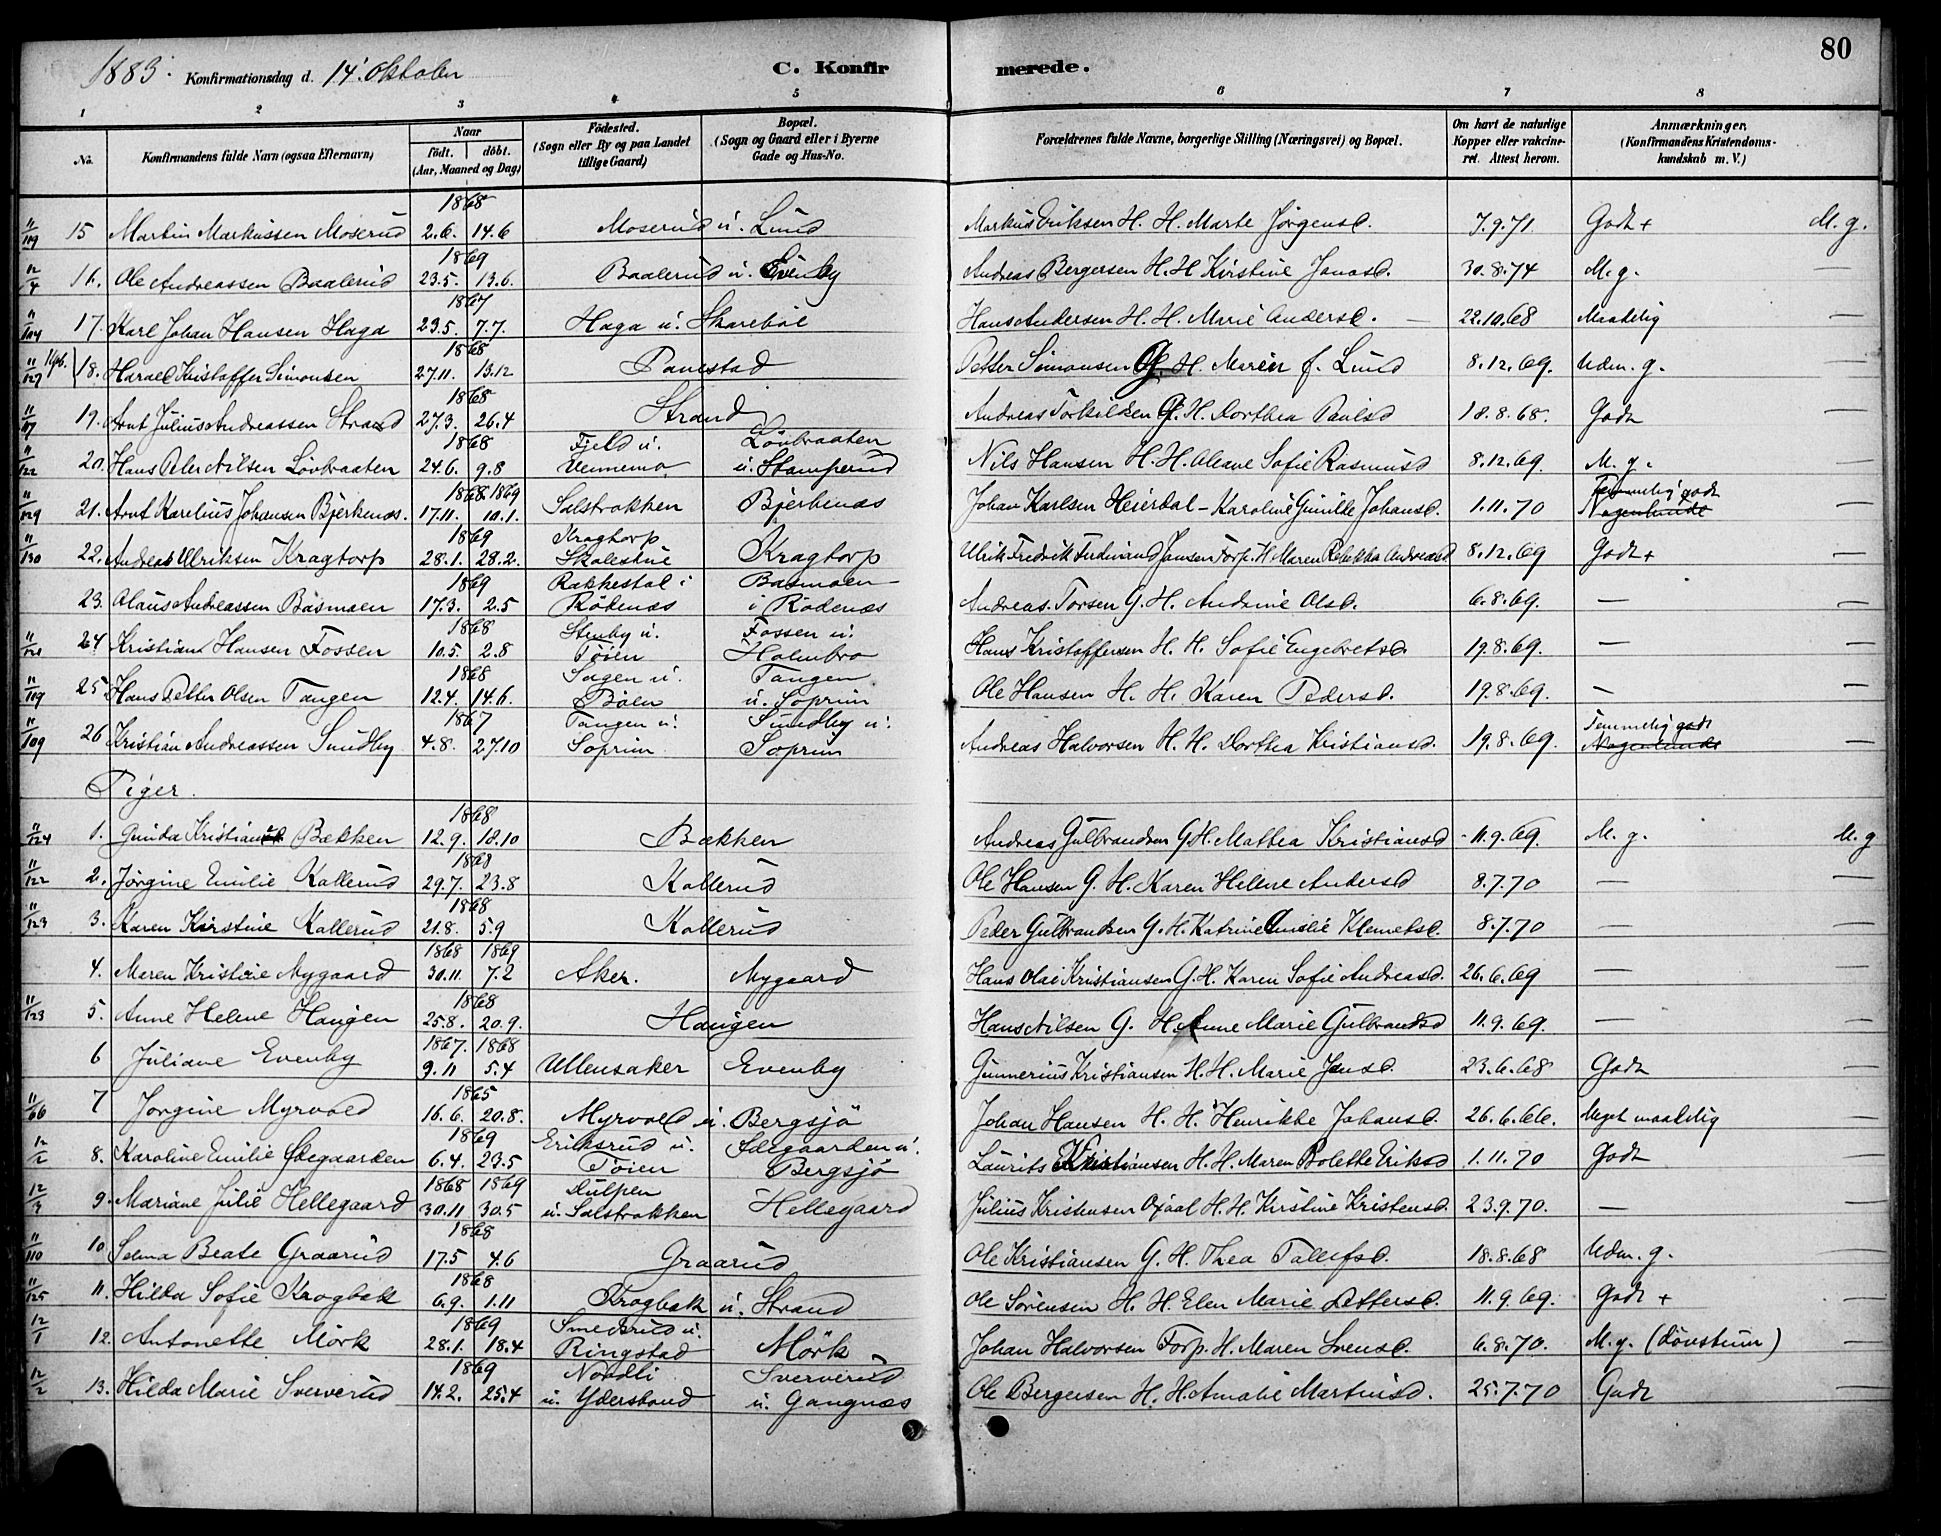 80
1883. Konfirmationsdag d. 14' Oktober C. Konfirmerede.
1 2 3 4 5 6 7 8
No. Konfirmandens fulde Navn (ogsaa Efternavn) Naar født. døbt. (Aar, Maaned og Dag) Fødested. (Sogn eller By og paa Landet tillige Gaard) Bopæl. (Sogn og Gaard eller i Byerne Gade og Hus-No. Forældrenes fulde Navne, borgerlige Stilling (Næringsvei) og Bopæl. Om havt de naturlige Kopper eller vakcineret. Attest herom. Anmærkninger. (Konfirmandens Kristendomskundskab m. V.)
1868
11/119 15 Martin Markussen Moserud 2.6. 14.6 Moserud u. Lund Markus Eriksen H. H. Marte Jørgensd. 7.9.71. Godt + M. g.
1869
12/4 16. Ole Andreassen Baalerud 23.5. 13.6. Baalerud u. Evenby Andreas Bergersen H. H. Kirstine Jonasd. 30.8.74 M. g. —
1867
11/104 17. Karl Johan Hansen Haga 23.5. 7.7. Haga u. Skarebøl Hans Andersen H. H. Marie Andersd. — 22.10.68 Maadelig —
1868
11/127 18. Harald Kristoffer Simonsen 27.11. 13.12 Panestad Petter Simonsen G. H. Maren f. Lund 8.12.69. Udm. g. —
1868
11/117 19. Arnt Julius Andreassen Strand 27.3. 26.4 Strand Andreas Torkildsen G. H. Dorthea Paulsd 18.8.68. Godt —
1868 Fjeld u. Løvbraaten
11/122 20. Hans Peter Nilsen Løvbraaten 24.6. 9.8 Vennemo u. Stamperud Nils Hansen H. H. Oleane Sofie Rasmusd 8.12.69. M. g. —
1868 1869 Temmelig godt
11/129 21. Arnt Karelius Johansen Bjerkenæs. 17.11. 10.1. Salstrokken Bjerkenæs Johan Karlsen Heierdal - Karoline Gunille Johansd. 1.11.70 Nogenlunde —
1869 Kragtorp
11/130 22. Andreas Ulriksen Kragtorp 28.1. 28.2. Skolestue Kragtorp Ulrik Fredrik Ferdinand Jansen Forp. H. Maren Rebekka Andreasd 8.12.69 Godt + —
1869 Rakkestad i Basmoen
23. Olaus Andreassen Basmoen 17.3. 2.5 Rødenæs i Rødenæs Andreas Torsen G. H. Andrine Olsd. 6.8.69. — —
1868 Stenby u. Fossen u.
24 Kristian Hansen Fossen 10.5. 2.8 Tøien Holmbro Hans Kristoffersen H. H. Sofie Engebretsd. 19.8.69. — —
1868 Sagen u. Tangen
11/119 25. Hans Petter Olsen Tangen 12.4. 14.6. Bøen u. Soprim Ole Hansen H. H. Karen Pedersd. 19.8.69. — —
1867 Tangen u. Sundby u. Temmelig godt.
11/109 26 Kristian Andreassen Sundby 4.8. 27.10 Soprim Soprim Andreas Halvorsen H. H. Dorthea Kristiansd. 19.8.69. Nogenlunde —
Piger.
1868
11/124 1. Gunda Kristiansd. Bækken 12.9. 18.10 Bækken Andreas Gulbrandsen G. H. Mathea Kristiansd - 11.9.69. M. g. M. g
1868
11/122 2. Jørgine Emilie Kallerud 29.7. 23.8 Kallerud Ole Hansen G. H. Karen Helene Andersd 8.7.70 — —
1868
11/123 3. Karen Kirstine Kallerud 21.8. 5.9 Kallerud Peder Gulbrandsen G. H. Katrine Emilie Klemetsd. 8.7.70 — —
1868 1869
4. Maren Kristine Nygaard 30.11. 7.2 Aker. Nygaard Hans Olai Kristiansen G. H. Karen Sofie Andreasd. 26.6.69 — —
1868
11/123 5. Anne Helene Haugen 25.8. 20.9. Haugen Hans Nilsen G. H. Anne Marie Gulbrandsd 11.9.69. — —
1867. 1868
6 Juliane Evenby 9.11 5.4 Ullensaker Evenby Gunnerius Kristiansen H. H. Marie Jensd. 23.6.68 Godt —
1865
11/66 7 Jørgine Myrvold 16.6. 20.8. Myrvold u. Bergsjø Johan Hansen H. H. Henrikke Johansd. 26.6.66. Meget maadelig —
1869 Eriksrud u. Ødegaarden u.
12/2 8. Karoline Emilie Ødegaarden 6.4. 23.5 Tøien Bergsjø Laurits Kristiansen H. H. Maren Bolette Eriksd 1.11.70 Godt —
1868 1869 Kulpen
12/3 9. Mariane Julie Hellegaard 30.11 30.5 u. Salstrokken Hellegaard Julius Kristensen Oxaal H. H. Kirstine Kristensd. 23.9.70. — —
1868
11/110 10 Selma Beate Graarud 17.5 4.6 Graarud Ole Kristiansen G. H. Thea Tallefsd. 18.8.68 Udm. g. —
1868
11/125 11. Hilda Sofie Krogbæk 6.9. 1.11 Krogbæk u. Strand Ole Sørensen H. H. Elen Marie Pettersd. 11.9.69. Godt + —
1869 Smedsrud u.
12/1 12. Antonette Mørk 28.1. 18.4 Ringstad Mørk Johan Halvorsen Forp. H. Maren Svensd. 6.8.70. M. g. (Døvstum) —
1869 Nordli Sververud
12/2 13. Hilda Marie Sververud 14.2. 25.4 u. Yderstoud u. Gangnæs Ole Bergersen H. H. Amalie Martinsd. 25.7.70 Godt —